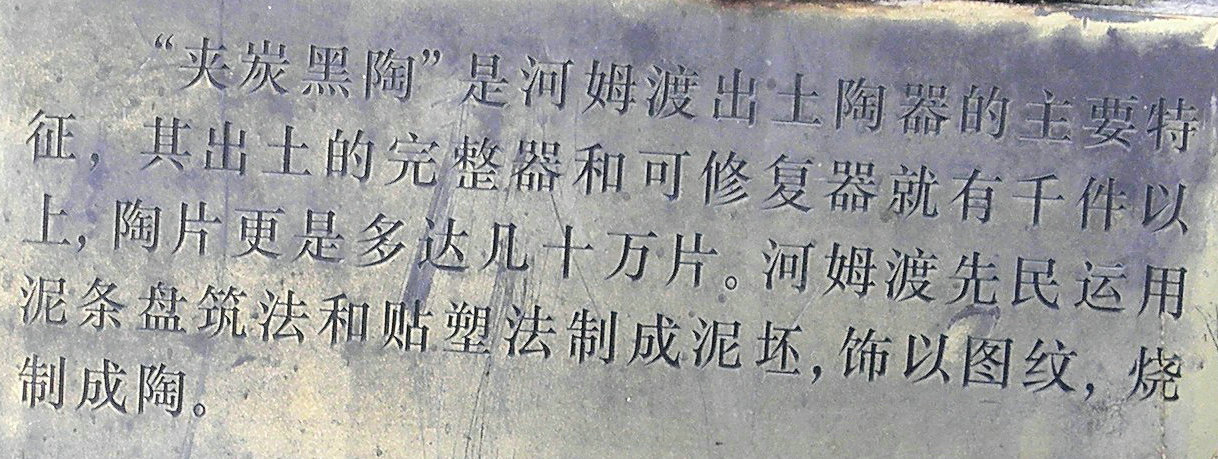 “夹炭黑陶”是河姆渡出土陶器的主要特
征，其出土的完整器和可修复器就有千件以
上，陶片更是多达几十万片。河姆渡先民运用
泥条盘筑法和贴塑法制成泥坯，饰以图纹，烧
制成陶。